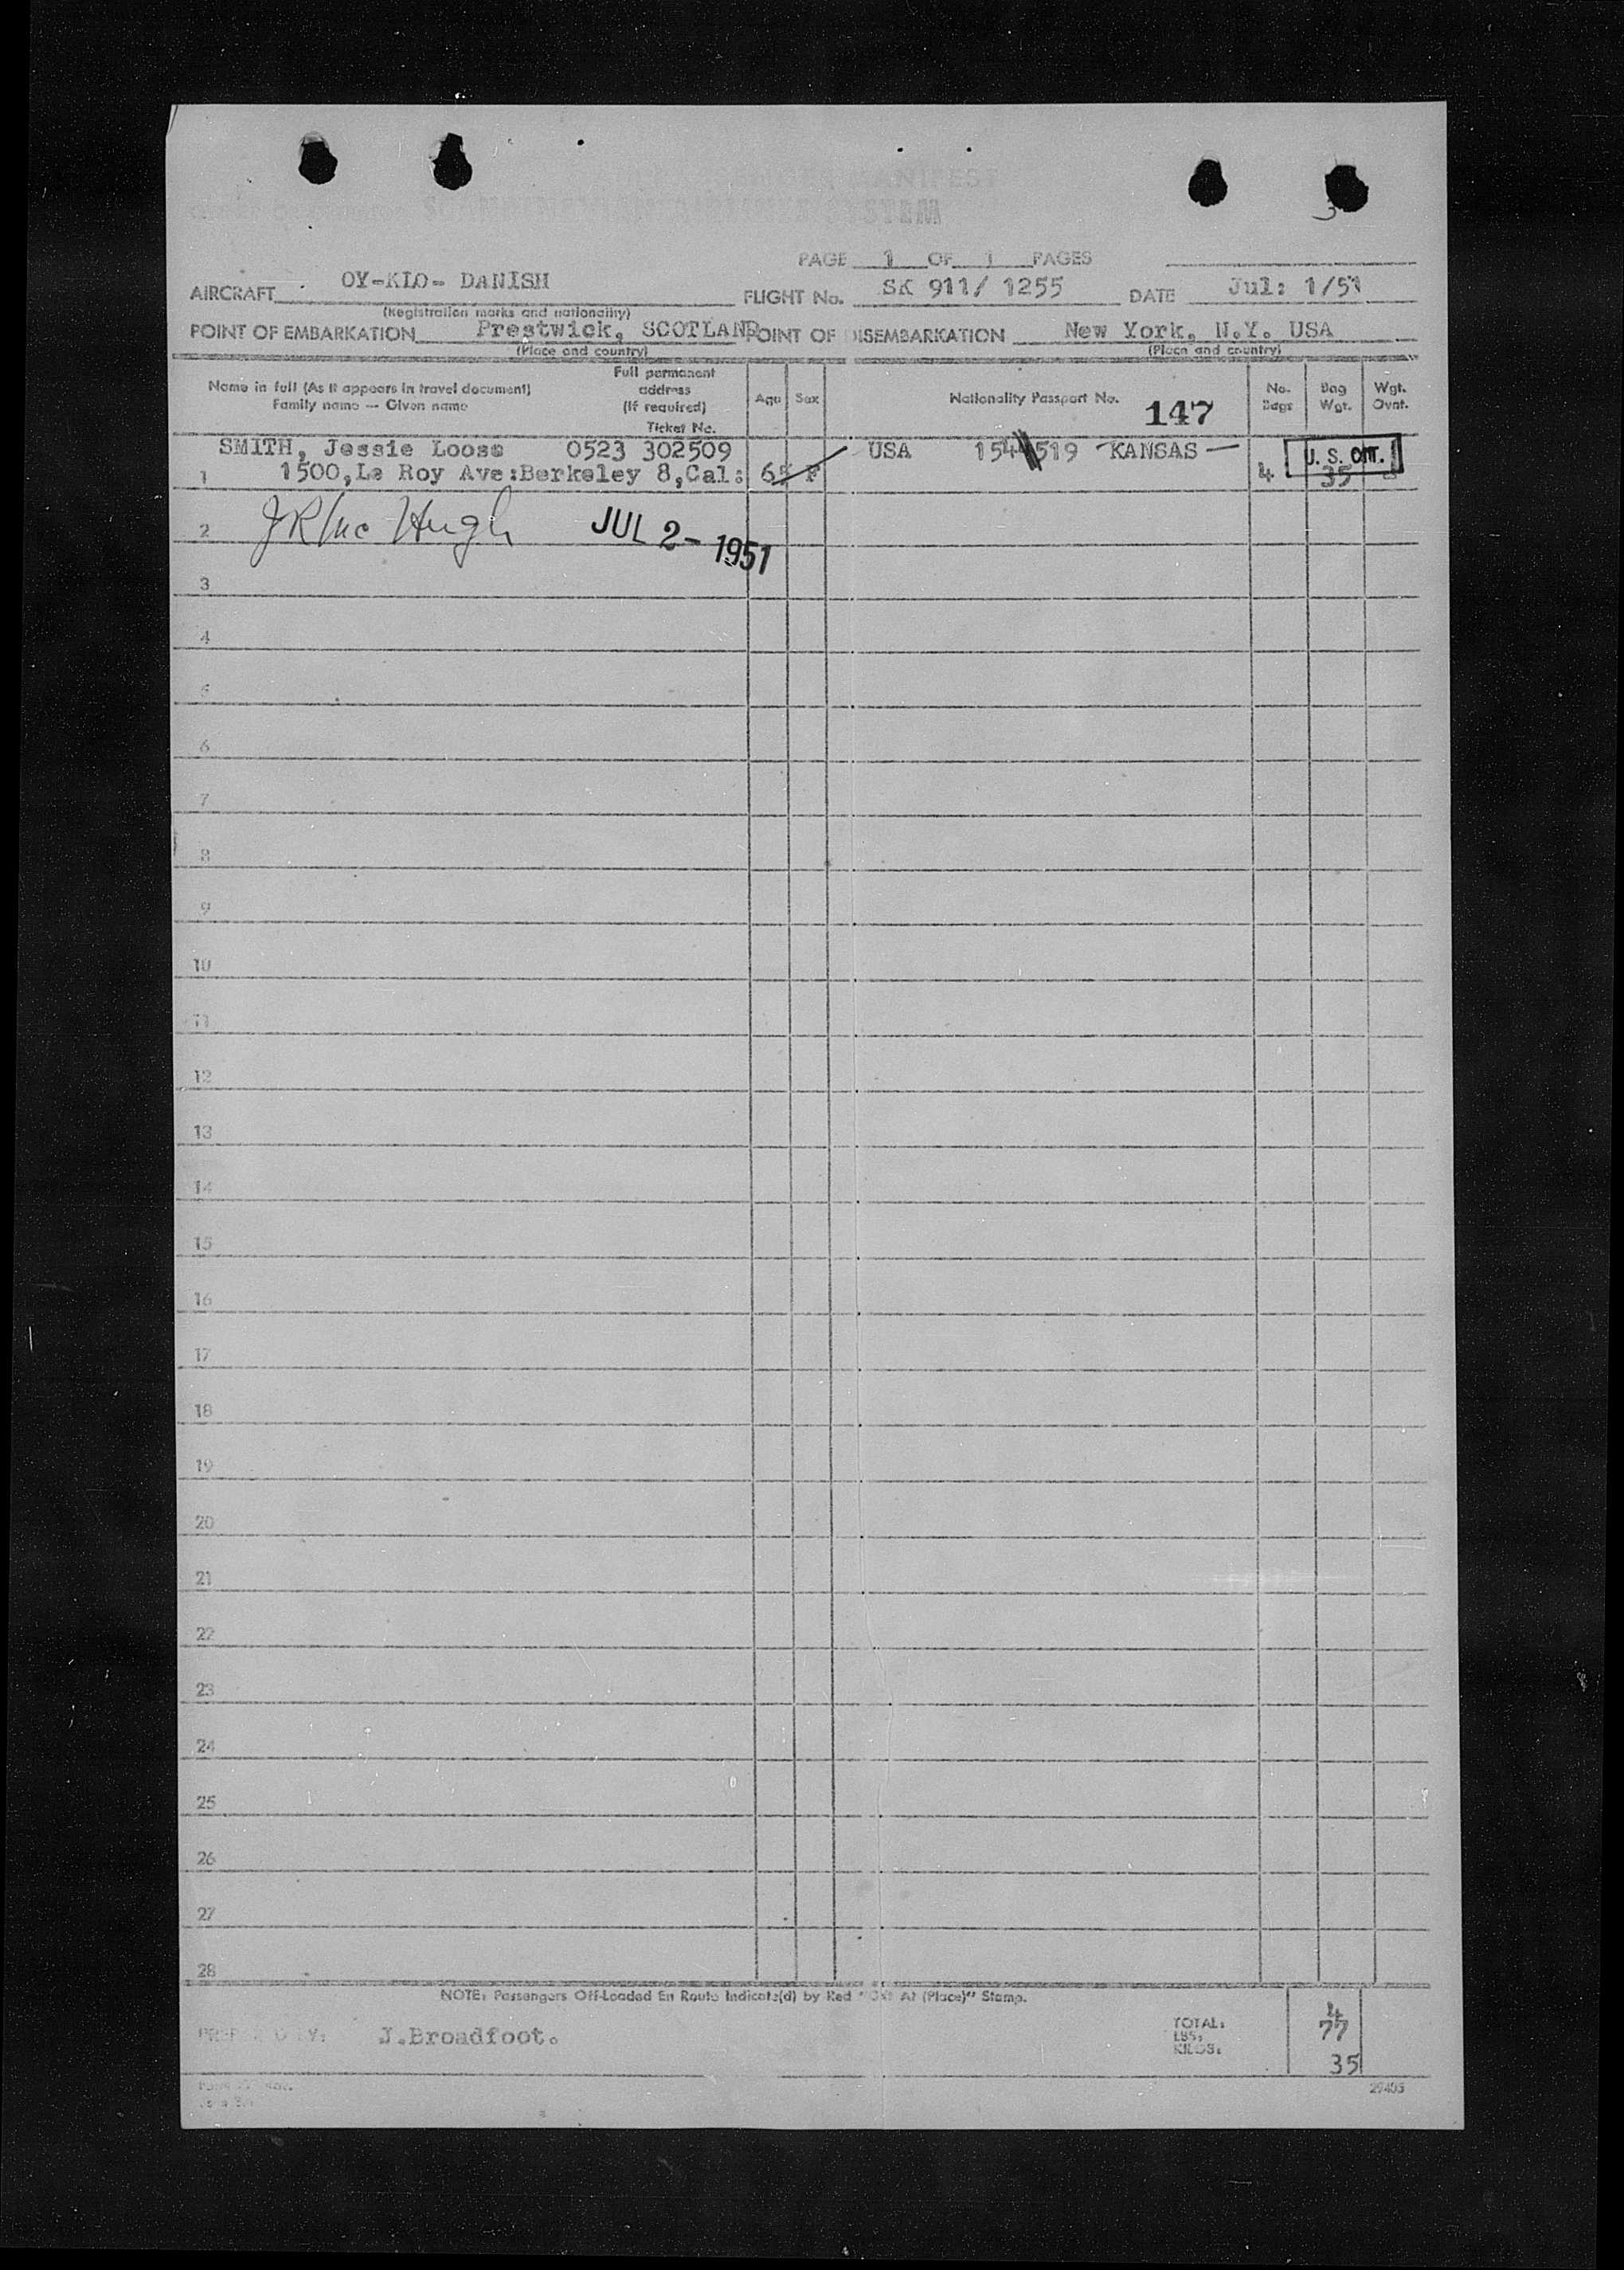 MANIFEST
SYSTEM
3
PAGE 1 OF 1 PAGES
AIRCRAFT OY-KLO- DANISH FLIGHT No. SK 911/ 1255 DATE Jul: 1/51
(Registration marks and nationality)
POINT OF EMBARKATION Prestwick, SCOTLAND POINT OF DISEMBARKATION New York, N.Y. USA
(Place and country) (Place and country)
Name in full (As it appears in travel document)
Family name — Given name
Full permanent
address
(If required)
Ticket No.
Age Sex Nationality Passport No. 147
No.
Bags
Bag
Wgt.
Wgt.
Ovnt.
SMITH, Jessie Loose 0523 302509 USA 154 519 KANSAS U. S. CIT.
1 1500,Le Roy Ave:Berkeley 8,Cal: 65 F 4 35
2 JUL 2- 1951
3
4
5
6
7
8
9
10
11
12
13
14
15
16
17
18
19
20
21
22
23
24
25
26
27
28
NOTE: Passengers Off-Loaded En Route Indicate(d) by Red At (Place)" Stamp.
J.Broadfoot.
TOTAL: 4
LBS: 77
KILOS: 35
29405